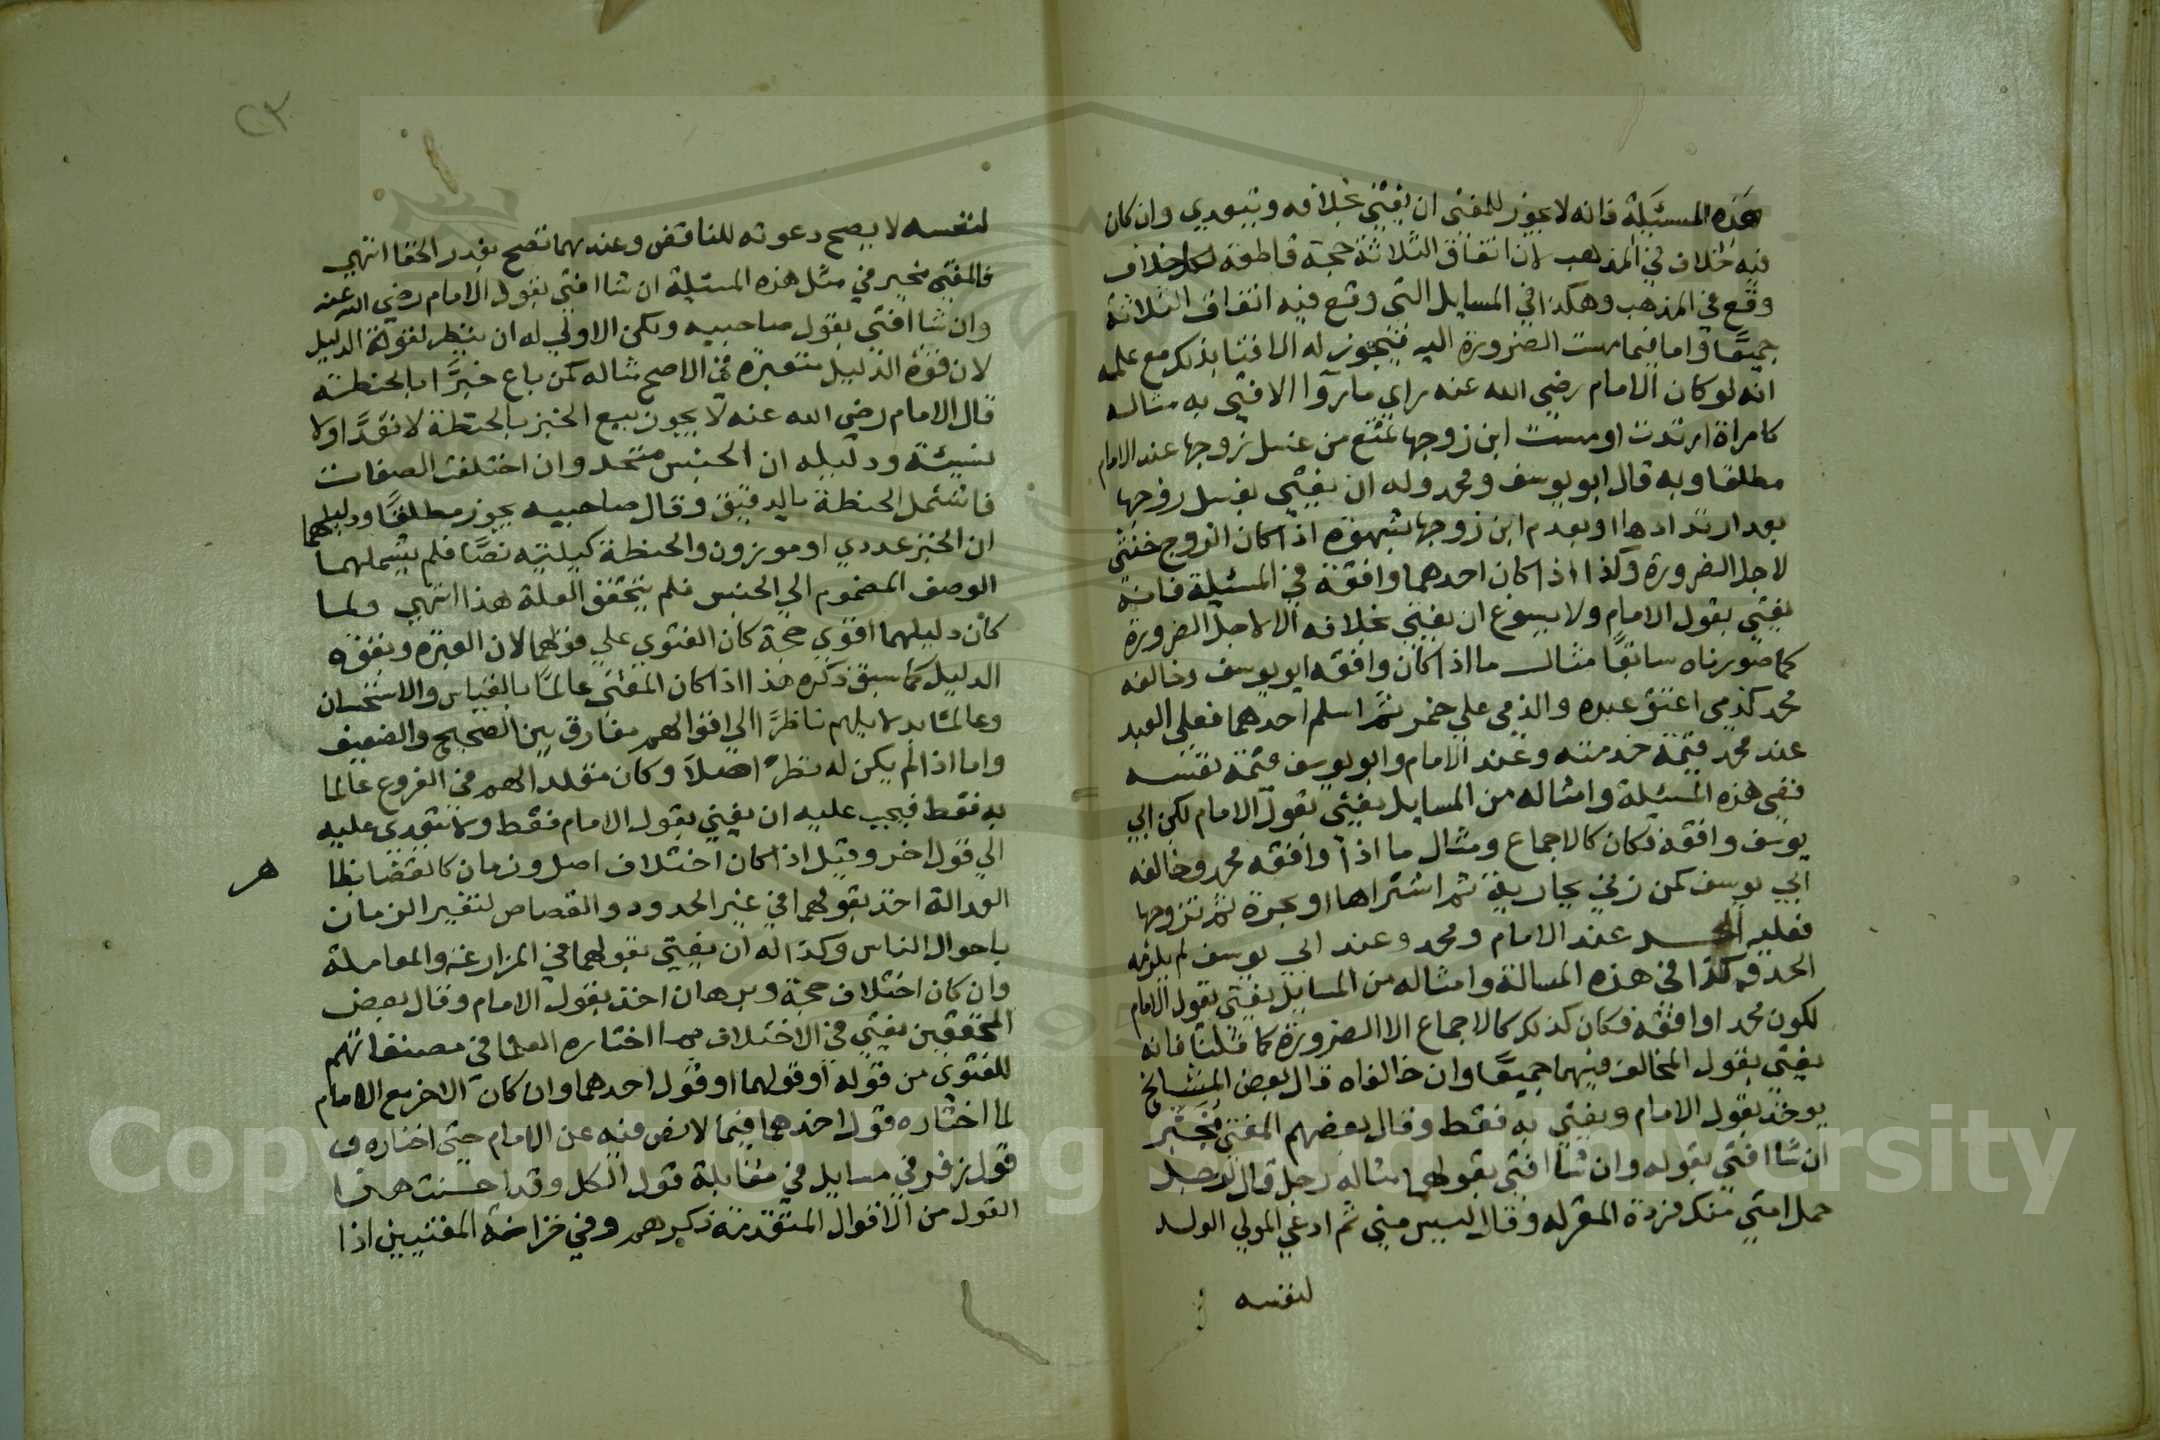 هذه المسئلة فانه لا يجوز للمفتى ان يفتي بخلافه ويتعدي وان كان
فيه خلاف في المذهب لان اتفاق الثلاثة حجة قاطعة لكل خلاف
وقع في المذهب وهكذا في المسايل التي وقع فيه اتفاق الثلاثة
جميعًا واما فيما مست الضرورة اليه فيجوز له الافتا بذلك مع علمه
انه لو كان الامام رضي الله عنه راي ما رآوا لافتي به مثاله
كامراة ارتدت او مست ابن زوجها تمتنع من غسل زوجها عند الامام
مطلقا وبه قال ابو يوسف ومحمد وله ان يفتي بغسل زوجها
بعد ارتدادها او بعد مس ابن زوجها بشهوة اذا كان الزوج خنثي
لاجل الضرورة وكذا اذا كان احدهما وافقه في المسئلة فانه
يفتي بقول الامام ولا يسوغ ان يفتي بخلافه الا لاجل الضرورة
كما صورناه سابقًا مثال ما اذا كان وافقه ابو يوسف وخالفه
محمد كذمي اعتق عبده والذمي علي خمر ثم اسلم احدهما فعلي العبد
عند محمد قيمة خدمته وعند الامام وابو يوسف قيمة نفسه
ففى هذه المسئلة وامثاله من المسايل يفتي بقول الامام لكن ابي
يوسف وافقه فكان كالاجماع ومثال ما اذا وافقه محمد وخالفه
ابي يوسف كمن زني بجارية ثم اشتراها او بحرة ثم تزوجها
فعليه الحد عند الامام ومحمد وعند ابي يوسف لم يلزمه
الحد وكذا في هذه المسالة وامثاله من المسايل يفتي بقول الامام
لكون محمدا وافقه فكان كذلك كالاجماع الا الضرورة كما قلنا فانه
يفتي بقول المخالف فيهما جميعًا وان خالفاه قال بعض المشايخ
يوخذ بقول الامام ويفتي به فقط وقال بعضهم المفتي مخير
ان شا افتي بقوله وان شا افتى بقولهما مثاله رجل قال لرجل
حمل امتي منك فرده المقر له وقال ليس مني ثم ادعي المولي الولد
لنفسه
٢٣
لنفسه لا يصح دعوته للناقض وعندهما تصح بقدر الخفا انتهي
فالمفتي مخير في مثل هذه المسئلة ان شا افتي بقول الامام رضي الله عنه
وان شا افتي بقول صاحبيه ولكن الاولي له ان ينظر لقوة الدليل
لان قوة الدليل متعبرة في الاصح مثاله كمن باع خبزًا بالحنطة
قال الامام رضي الله عنه لا يجوز بيع الخبز بالحنطة لا نقدًا ولا
نسيئة ودليله ان الجنس متحد وان اختلفت الصفات
فاشتمل الحنطة بالدقيق وقال صاحبيه يجوز مطلقًا ودليلهما
ان الخبز عددي او موزون والحنطة كيلية نصًا فلم يشملهما
الوصف المضموم الي الجنس فلم يتحقق العلة هذا انتهي ولما
كان دليلهما اقوي حجة كان الفتوي علي قولهما لان العبرة وبقوة
الدليل كما سبق ذكره هذا اذا كان المفتي عالمًا بالقياس والاستحسان
وعالمًا بدلايلهم ناظرًا الي اقوالهم مفارق بين الصحيح والضعيف
واما اذا لم يكن له نظرً اصلاً وكان مقلد الهم في الفروع عالما
به فقط فيجب عليه ان يفتي بقول الامام فقط ولا يتعدى عليه
الي قول اخر وقيل اذا كان اختلاف اصل وزمان كالقضا بظا
هر
العدالة اخذ بقولهما في غير الحدود والقصاص لتغير الزمان
باحوال الناس وكذا له ان يفتي بقولهما في المزارعة والمعاملة
وان كان اختلاف حجة وبرهان اخذ بقول الامام وقال بعض
المحققين يفتي في الاختلاف بما اختاره العلما في مصنفاتهم
للفتوى من قوله او قولهما او قول احدهما وان كان الاخر مع الامام
لما اختاره قول احدهما فيما لا نص فيه عن الامام حتي اختاره
قول زفر في مسايل في مقابلة قول الكل وقد احسنت هذا
القول من الاقوال المتقدمة ذكرهم وفي خزانة المفتيين اذا
Copyright © King Saud University